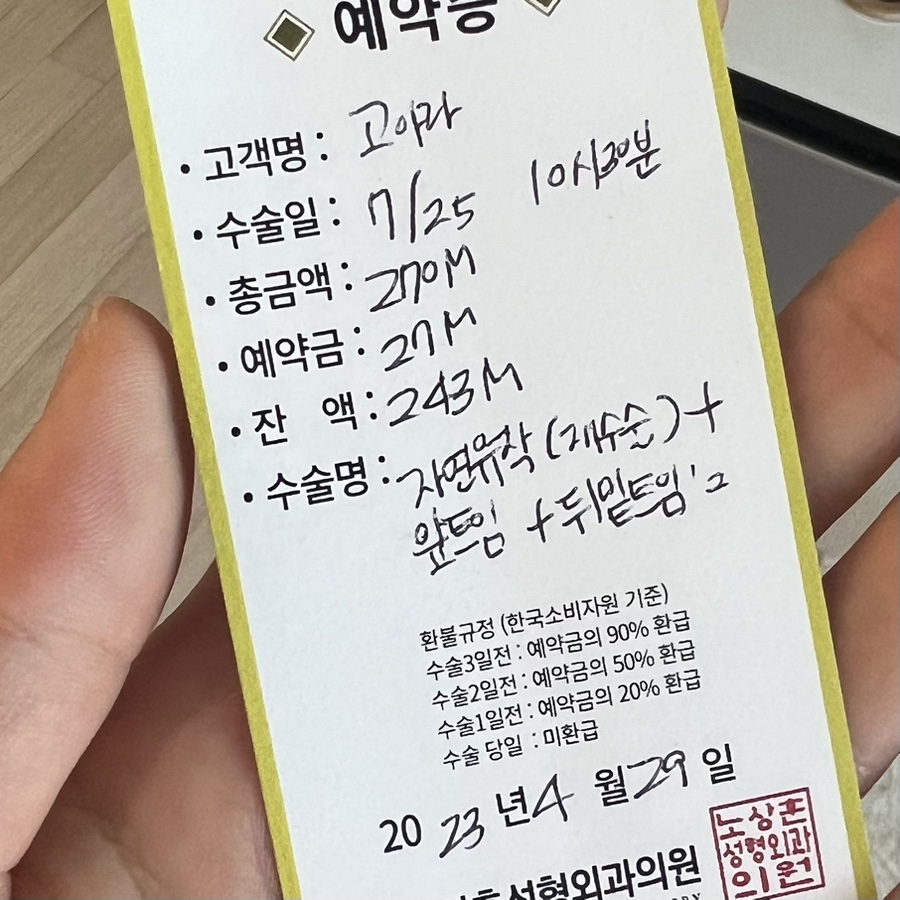 예약증
• 고객명 : 고아라
• 수술일 : 7/25 10시30분
• 총금액 : 270M
• 예약금 : 27M
• 잔 액 : 243M
• 수술명 : 자연유착 (재수술) +
앞트임 + 뒤밑트임
환불규정 (한국소비자원 기준)
수술3일전 : 예약금의 90% 환급
수술2일전 : 예약금의 50% 환급
수술1일전 : 예약금의 20% 환급
수술 당일 : 미환급
20 23 년 4 월 29 일
성형외과의원
노상훈
성형외과
의원